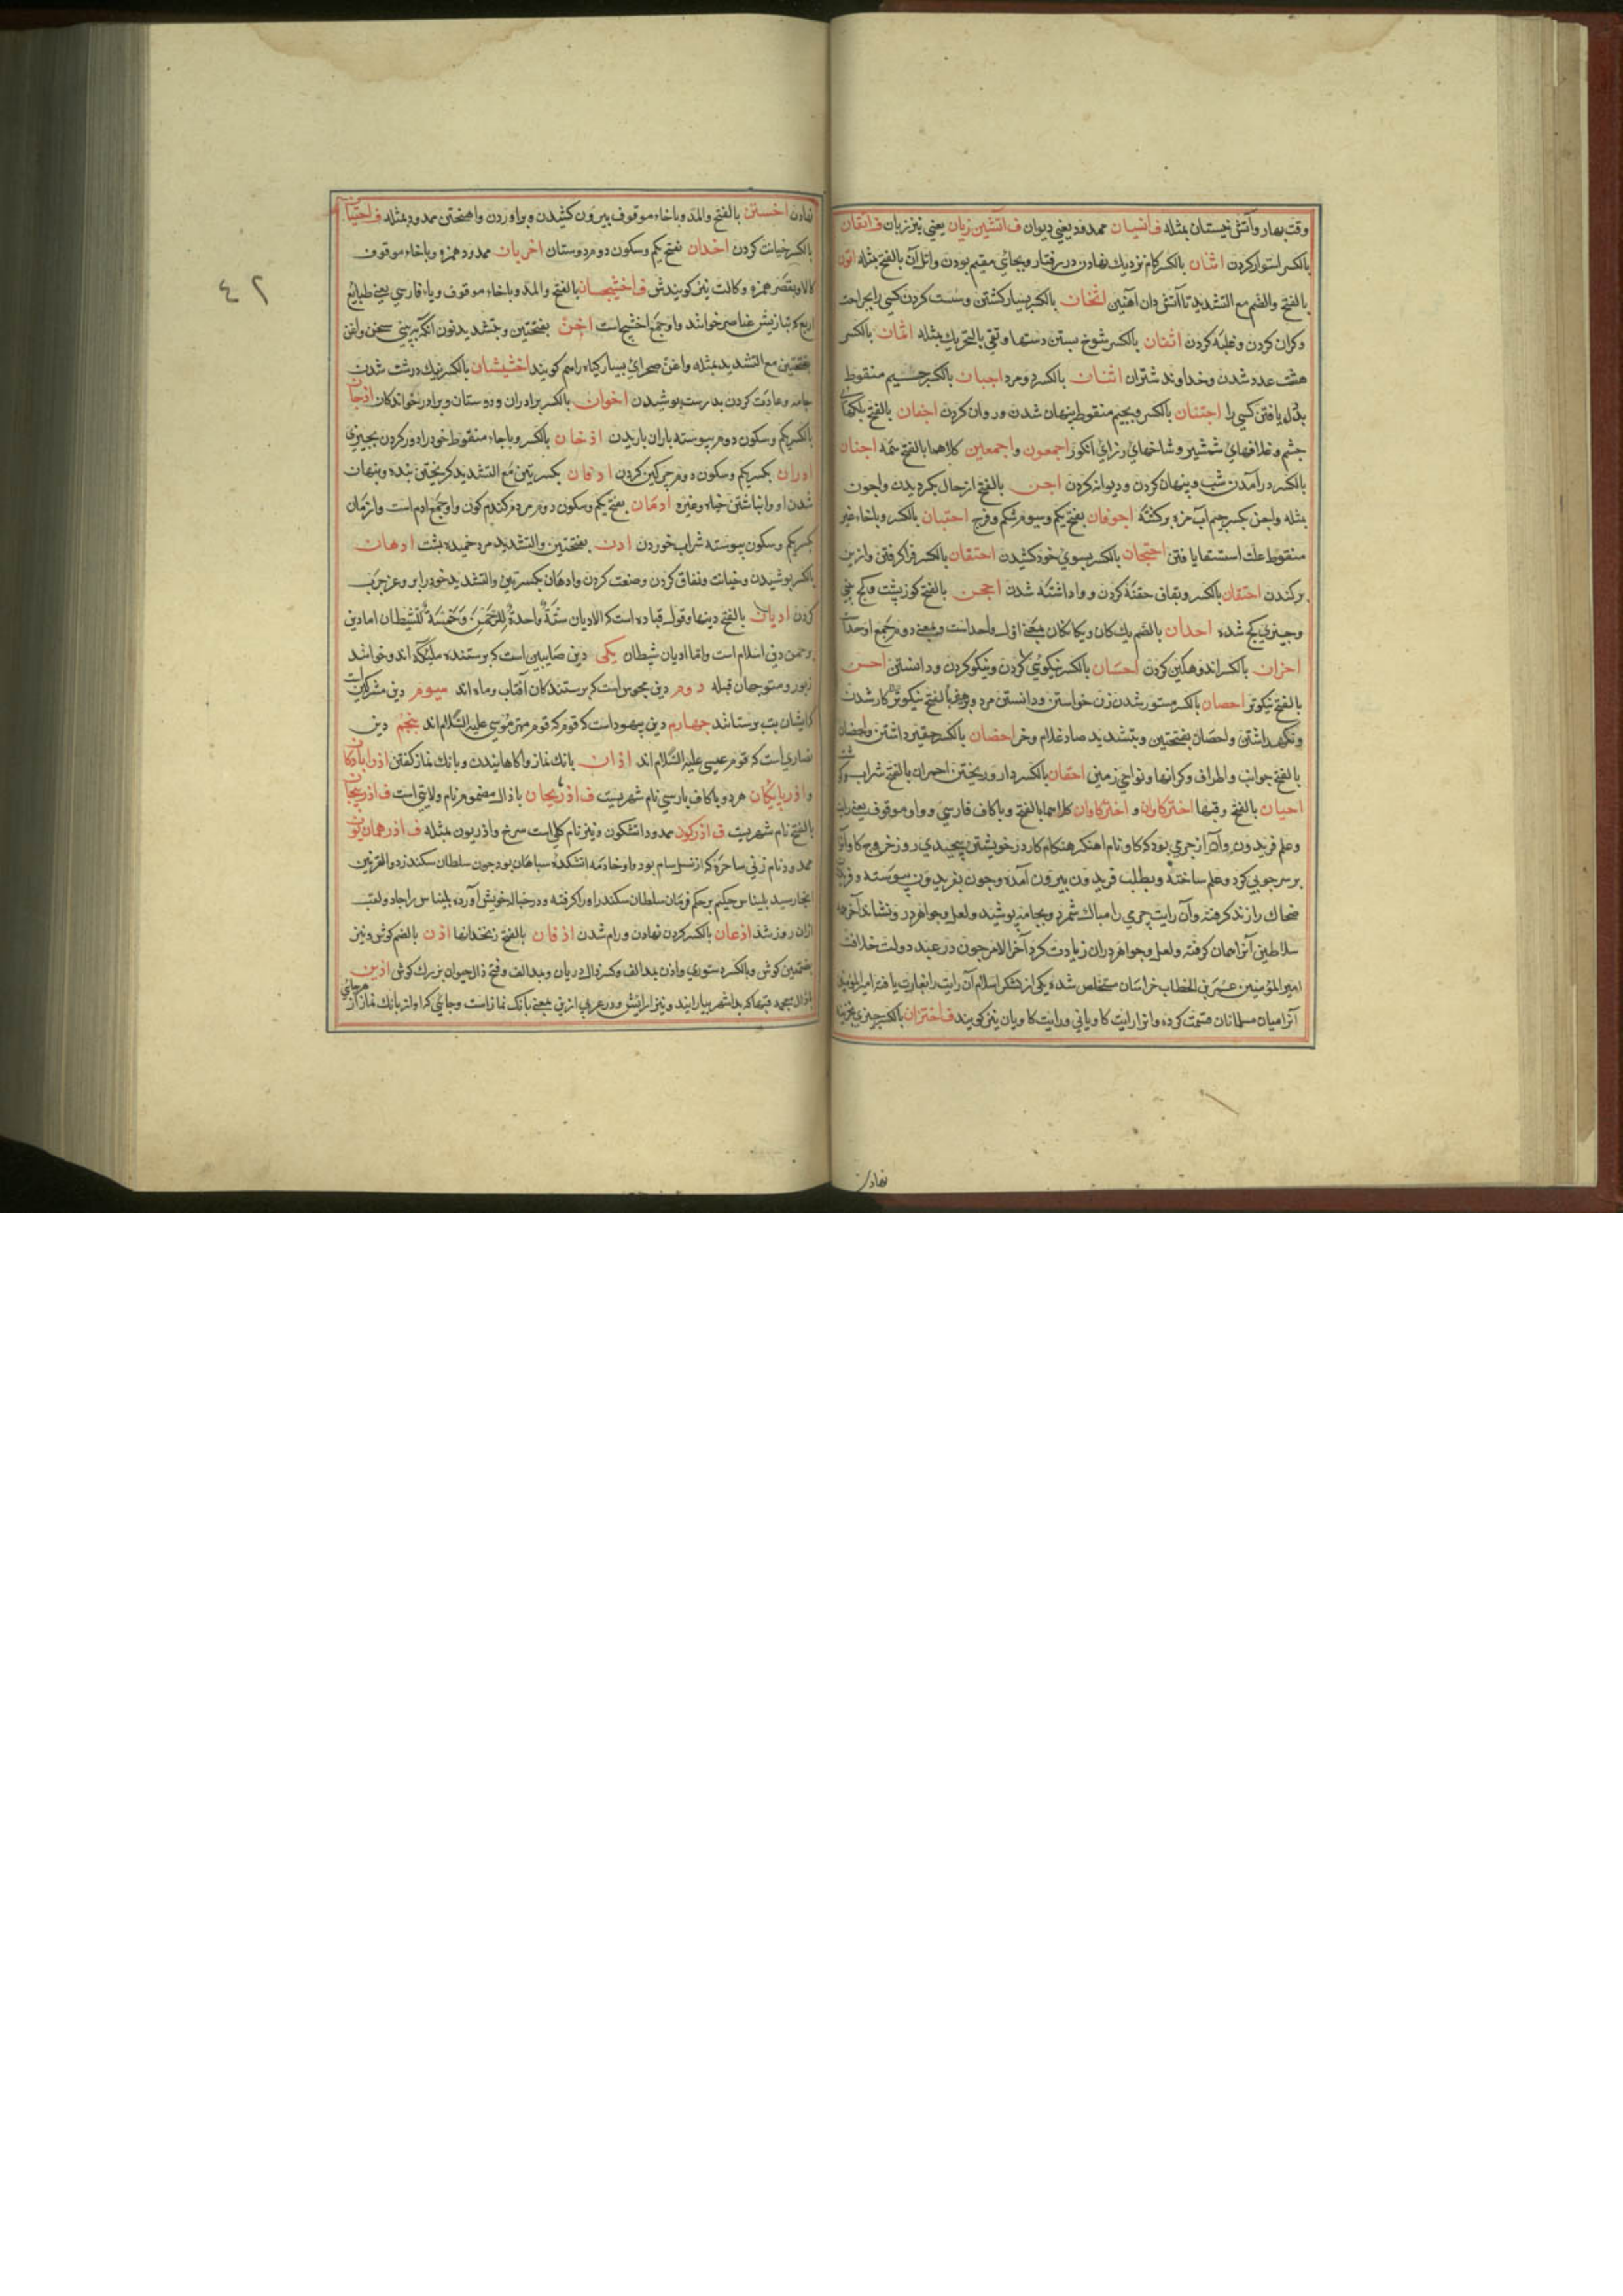 وقت بهار و آتش خیستان بمثله ف انسیان ممدود یعنی دیوان ف آتشین زبان یعنی تیز زبان ف اتقان
بالکسر استوار کردن اتنان بالکسر کام نزدیك نهادن در رفتار و بجائی مقیم بودن واتل آن بالفتح بمثله اتون
بالفتح والضم مع التشدید تا آتش دان آهنین اثخان بالکسر بسیار کشتن و سست کردن کسی را بجراحت
وکران کردن و غلبه کردن اثنان بالکسر شوخ بستن دستها و تقی بالتحریك بمثله اثمان بالکسر
هشت عدد شدن و خداوند شتران اثنان بالکسر دو مرد اجبان بالکسر جسیم منقوط
بددل یافتن کسی را اجتنان بالکسر و بجیم منقوط پنهان شدن و روان کردن اجفان بالفتح پلکهای
چشم و غلافهای شمشیر و شاخهای رزای انکور اجمعون و اجمعین کلاهما بالفتح همه اجنان
بالکسر در آمدن شب و پنهان کردن و دیوانه کردن اجن بالفتح از حال بکردیدن و اجون
بمثله واجن بکسر جیم آب مزه برکشته اجوفان بفتح یکم و سیوم شکم و فرج احتبان بالکسر و باخاء غیر
منقوط علت استسقا یافتن احتجان بالکسر بسوی خود کشیدن احتقان بالکسر فرا کرفتن و از بن
برکندن احتقان بالکسر و بقاف حقنه کردن و واداشته شدن احجن بالفتح کوز پشت و کج بینی
و چیزی کج شده احدان بالضم یك کان و یکانکان بمعنی اول واحد است و بمعنی دوم جمع اوحد
احزان بالکسر اندوهکین کردن احسان بالکسر نیکوئی کردن و نیکو کردن و دانستن احسن
بالفتح نیکوتر احصان بالکسر مستور شدن زن خواستن و دانستن مرد
ونکهداشتن واحصان بفتحتین و بتشدید صاد غلام و خر احضان بالکسر حقیر داشتن واحضان
بالفتح جوانب و اطراف و کرانها و نواحی زمین احقان بالکسر دار و ریختن احمران بالفتح شراب و کوشت
احیان بالفتح وقتها اخترکاوان و اخترکاوان کلاهما بالفتح و باکاف فارسی و واو موقوف یعنی رایت
و علم فریدون و آن از چرمی بود که کاوه نام آهنکر هنکام کار در خویشتن پیچیدی روز خروج کاوه آنرا
بر سر چوبی کرد و علم ساخته و بطلب فریدون بیرون آمده و چون بفریدون پیوسته و فریدون
ضحاك را زنده کرفته و آن رایت چرمی را مبارك شمرد و بجامه پوشید و لعل و جواهر در و نشاند آخر همه
سلاطین آنرا همان کرفته و لعل و جواهر دران زیادت کرد آخر الامر چون در عهد دولت خلافت
امیر المؤمنین عمر بن الخطاب خراسان مستخلص شده یکی از لشکر اسلام آن رایت را بغارت یافته امیر المؤمنین
آنرا میان مسلمانان قسمت کرده و انرا رایت کاویانی و رایت کاویان نیز کویند ف اختزان بالکسر چیزی بخزینه
نهادن
٤٢
نهادن اخستن بالفتح والمد و باخاء موقوف بیرون کشیدن و براوردن واهنختن ممدود بمثله ف اختیان
بالکسر خیانت کردن اخدان بفتح یکم و سکون دوم دوستان اخریان ممدود همزه و باخاء موقوف
کالا و بقصر همزه و کالت نیز کویندش ف اخشیجان بالفتح والمد و باخاء موقوف و یاء فارسی یعنی طبایع
اربع که بتازیش عناصر خوانند و او جمع اخشیج است اخن بفتحتین و بتشدید نون آنکه به بینی سخن واغن
بفتحتین مع التشدید بمثله واغن صحرای بسیار کیاه را هم کویند اخشیشان بالکسر نیك درشت شدن
جامه و عادت کردن بدارست پوشیدن اخوان بالکسر برادران و دوستان و برادر خواندکان ادجان
بالکسر یکم و سکون دوم پیوسته باران باریدن ادخان بالکسر و باخاء منقوط خود را دور کردن بچیزی
ادران بکسر یکم و سکون دوم چرکین کردن ادفان بکسرتین مع التشدید کریختن بنده و پنهان
شدن او و انباشتن خباء و غیره ادمان بفتح یکم و سکون دوم مردم کندم کون و او جمع ادم است و از مان
بکسر یکم و سکون پیوسته شراب خوردن ادن بفتحتین والتشدید مرد خمیده پشت ادهان
بالکسر پوشیدن و خیانت و نفاق کردن و صنعت کردن وادهان بکسرتین والتشدید خود را بروغن چرب
کردن ادیان بالفتح دینها و قول قتاده است که الادیان ستة واحدة للرحمن و خمسة للشیطان اما دین
رحمن دین اسلام است و اما ادیان شیطان یکی دین صابیین است که پرستنده ملئکه اند و خوانند
زبور و متوجهان قبله دوم دین مجوس است که پرستندکان آفتاب و ماه اند سیوم دین مشرکین است
کایشان بت پرستانند چهارم دین یهود است که قوم مهتر موسی علیه السلام اند پنجم دین
نصاری است که قوم عیسی علیه السلام اند اذان بانك نماز و آکاهانیدن و بانك نماز کفتن اذرابادکان
و اذربایکان هر دو باکاف پارسی نام شهریست ف اذربیجان باذال مضموم نام ولایتی است ف اذربیجان
بالفتح نام شهریست ف اذرکون ممدود آتشکون و نیز نام کلی است سرخ واذریون بمثله ف اذرهمایون
ممدود نام زنی ساحره که از نسل سام بود و او خادمه آتشکده سپاهان بود چون سلطان سکندر ذو القرنین
آنجا رسید بلیناس حکیم بر حکم فرمان سلطان سکندر اورا کرفته و در حباله خویش آورده بلیناس را جادو لقب
ازان روز شد اذعان بالکسر کردن نهادن و رام شدن اذقان بالفتح زنخدانها اذن بالضم کوش و نیز
بضمتین کوش و بالکسر دستوری واذن بمد الف و کسر ذال دربان و بمد الف و فتح ذال حیوان بزرك کوش اذین
بالذال معجمه قبها که بدان شهر بیارایند و نیز آرایش و در عربی اذین بمعنی بانك نماز است و جائی که آواز بانك نماز از هر جائی